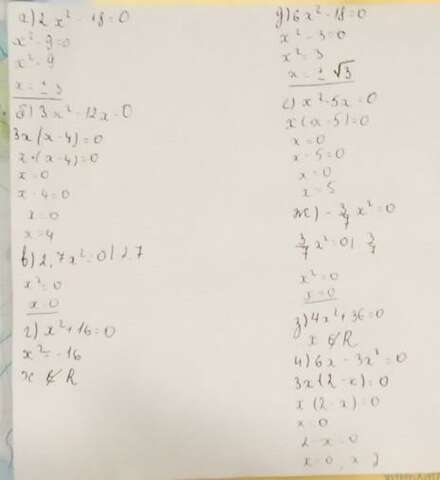 а) 2x² - 18 = 0
x² - 9 = 0
x² = 9
x = ± 3
б) 3x² - 12x = 0
3x(x - 4) = 0
x(x - 4) = 0
x = 0
x - 4 = 0
x = 0
x = 4
в) 2,7x² = 0 | 2,7
x² = 0
x = 0
г) x² + 16 = 0
x² = -16
x ∉ R
д) 6x² - 18 = 0
x² - 3 = 0
x² = 3
x = ± √3
е) x² - 5x = 0
x(x - 5) = 0
x = 0
x - 5 = 0
x = 0
x = 5
ж) - 3/7 x² = 0
3/7 x² = 0 | 3/7
x² = 0
x = 0
з) 4x² + 36 = 0
x ∉ R
и) 6x - 3x² = 0
3x(2 - x) = 0
x(2 - x) = 0
x = 0
2 - x = 0
x = 0, x 2